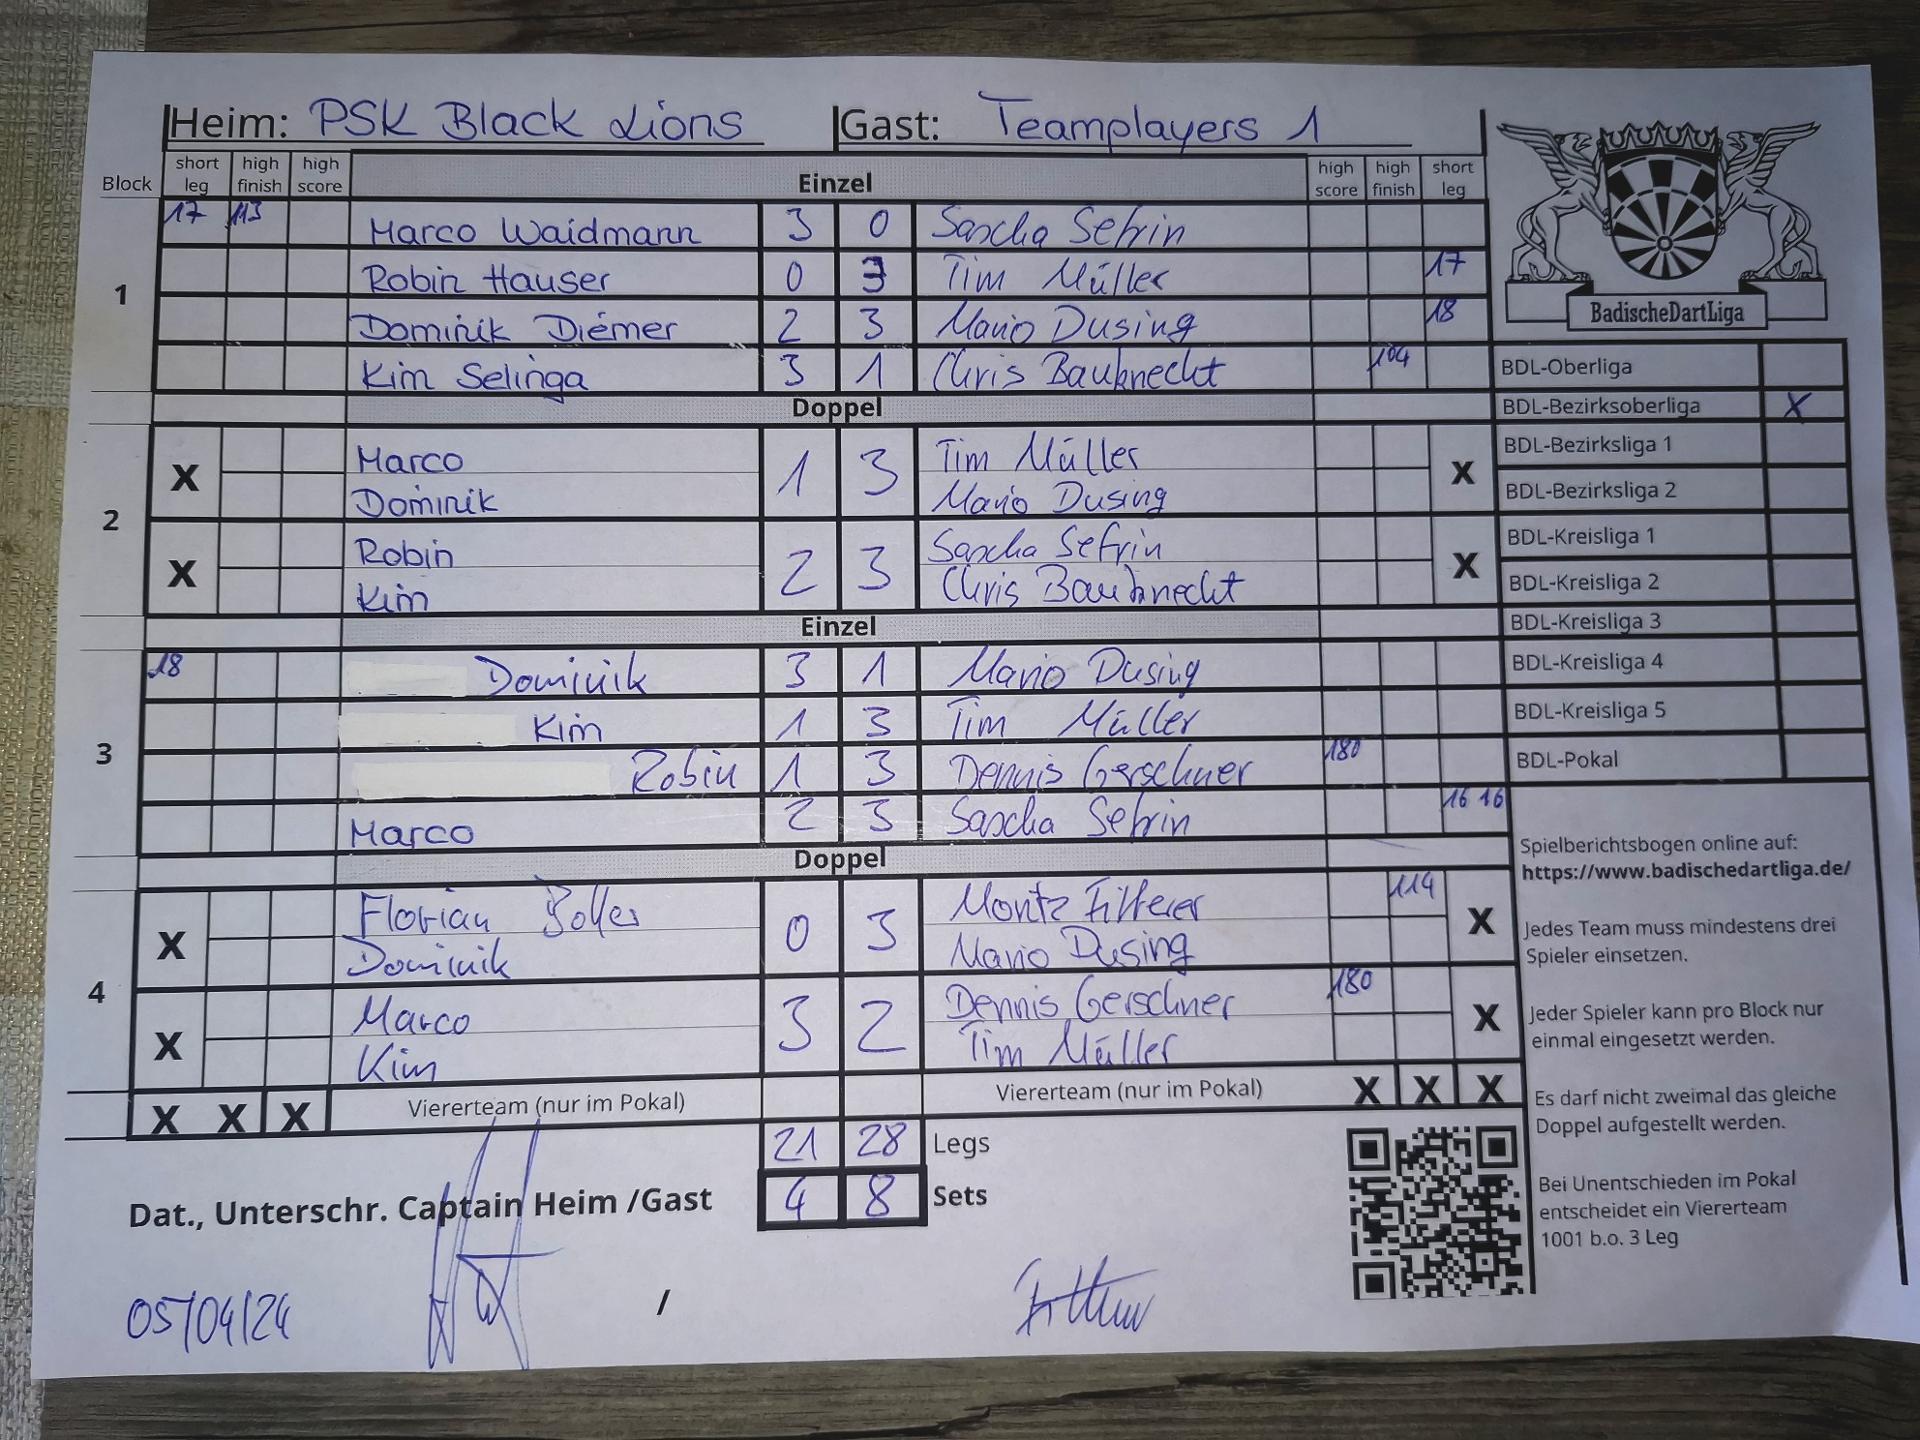 Heim: PSK Black Lions Gast: Teamplayers 1
Block short leg high finish high score Einzel high score high finish short leg
1
17 113 Marco Waidmann 3 0 Sascha Sefrin
Robin Hauser 0 3 Tim Müller 17
Dominik Diemer 2 3 Mario Dusing 18
Kim Selinga 3 1 Chris Bauknecht 104
Doppel
2
X Marco 1 3 Tim Müller X
Dominik Mario Dusing
X Robin 2 3 Sascha Sefrin X
Kim Chris Bauknecht
Einzel
3
18 Dominik 3 1 Mario Dusing
Kim 1 3 Tim Müller
Robin 1 3 Dennis Gerschner 180
Marco 2 3 Sascha Sefrin 16 16
Doppel
4
X Florian 0 3 Moritz Fitterer 114 X
Dominik Mario Dusing
X Marco 3 2 Dennis Gerschner 180 X
Kim Tim Müller
X X X Viererteam (nur im Pokal) Viererteam (nur im Pokal) X X X
21 28 Legs
4 8 Sets
Dat., Unterschr. Captain Heim /Gast
05/04/24 /
BadischeDartLiga
BDL-Oberliga
BDL-Bezirksoberliga X
BDL-Bezirksliga 1
BDL-Bezirksliga 2
BDL-Kreisliga 1
BDL-Kreisliga 2
BDL-Kreisliga 3
BDL-Kreisliga 4
BDL-Kreisliga 5
BDL-Pokal
Spielberichtsbogen online auf:
https://www.badischedartliga.de/
Jedes Team muss mindestens drei
Spieler einsetzen.
Jeder Spieler kann pro Block nur
einmal eingesetzt werden.
Es darf nicht zweimal das gleiche
Doppel aufgestellt werden.
Bei Unentschieden im Pokal
entscheidet ein Viererteam
1001 b.o. 3 Leg